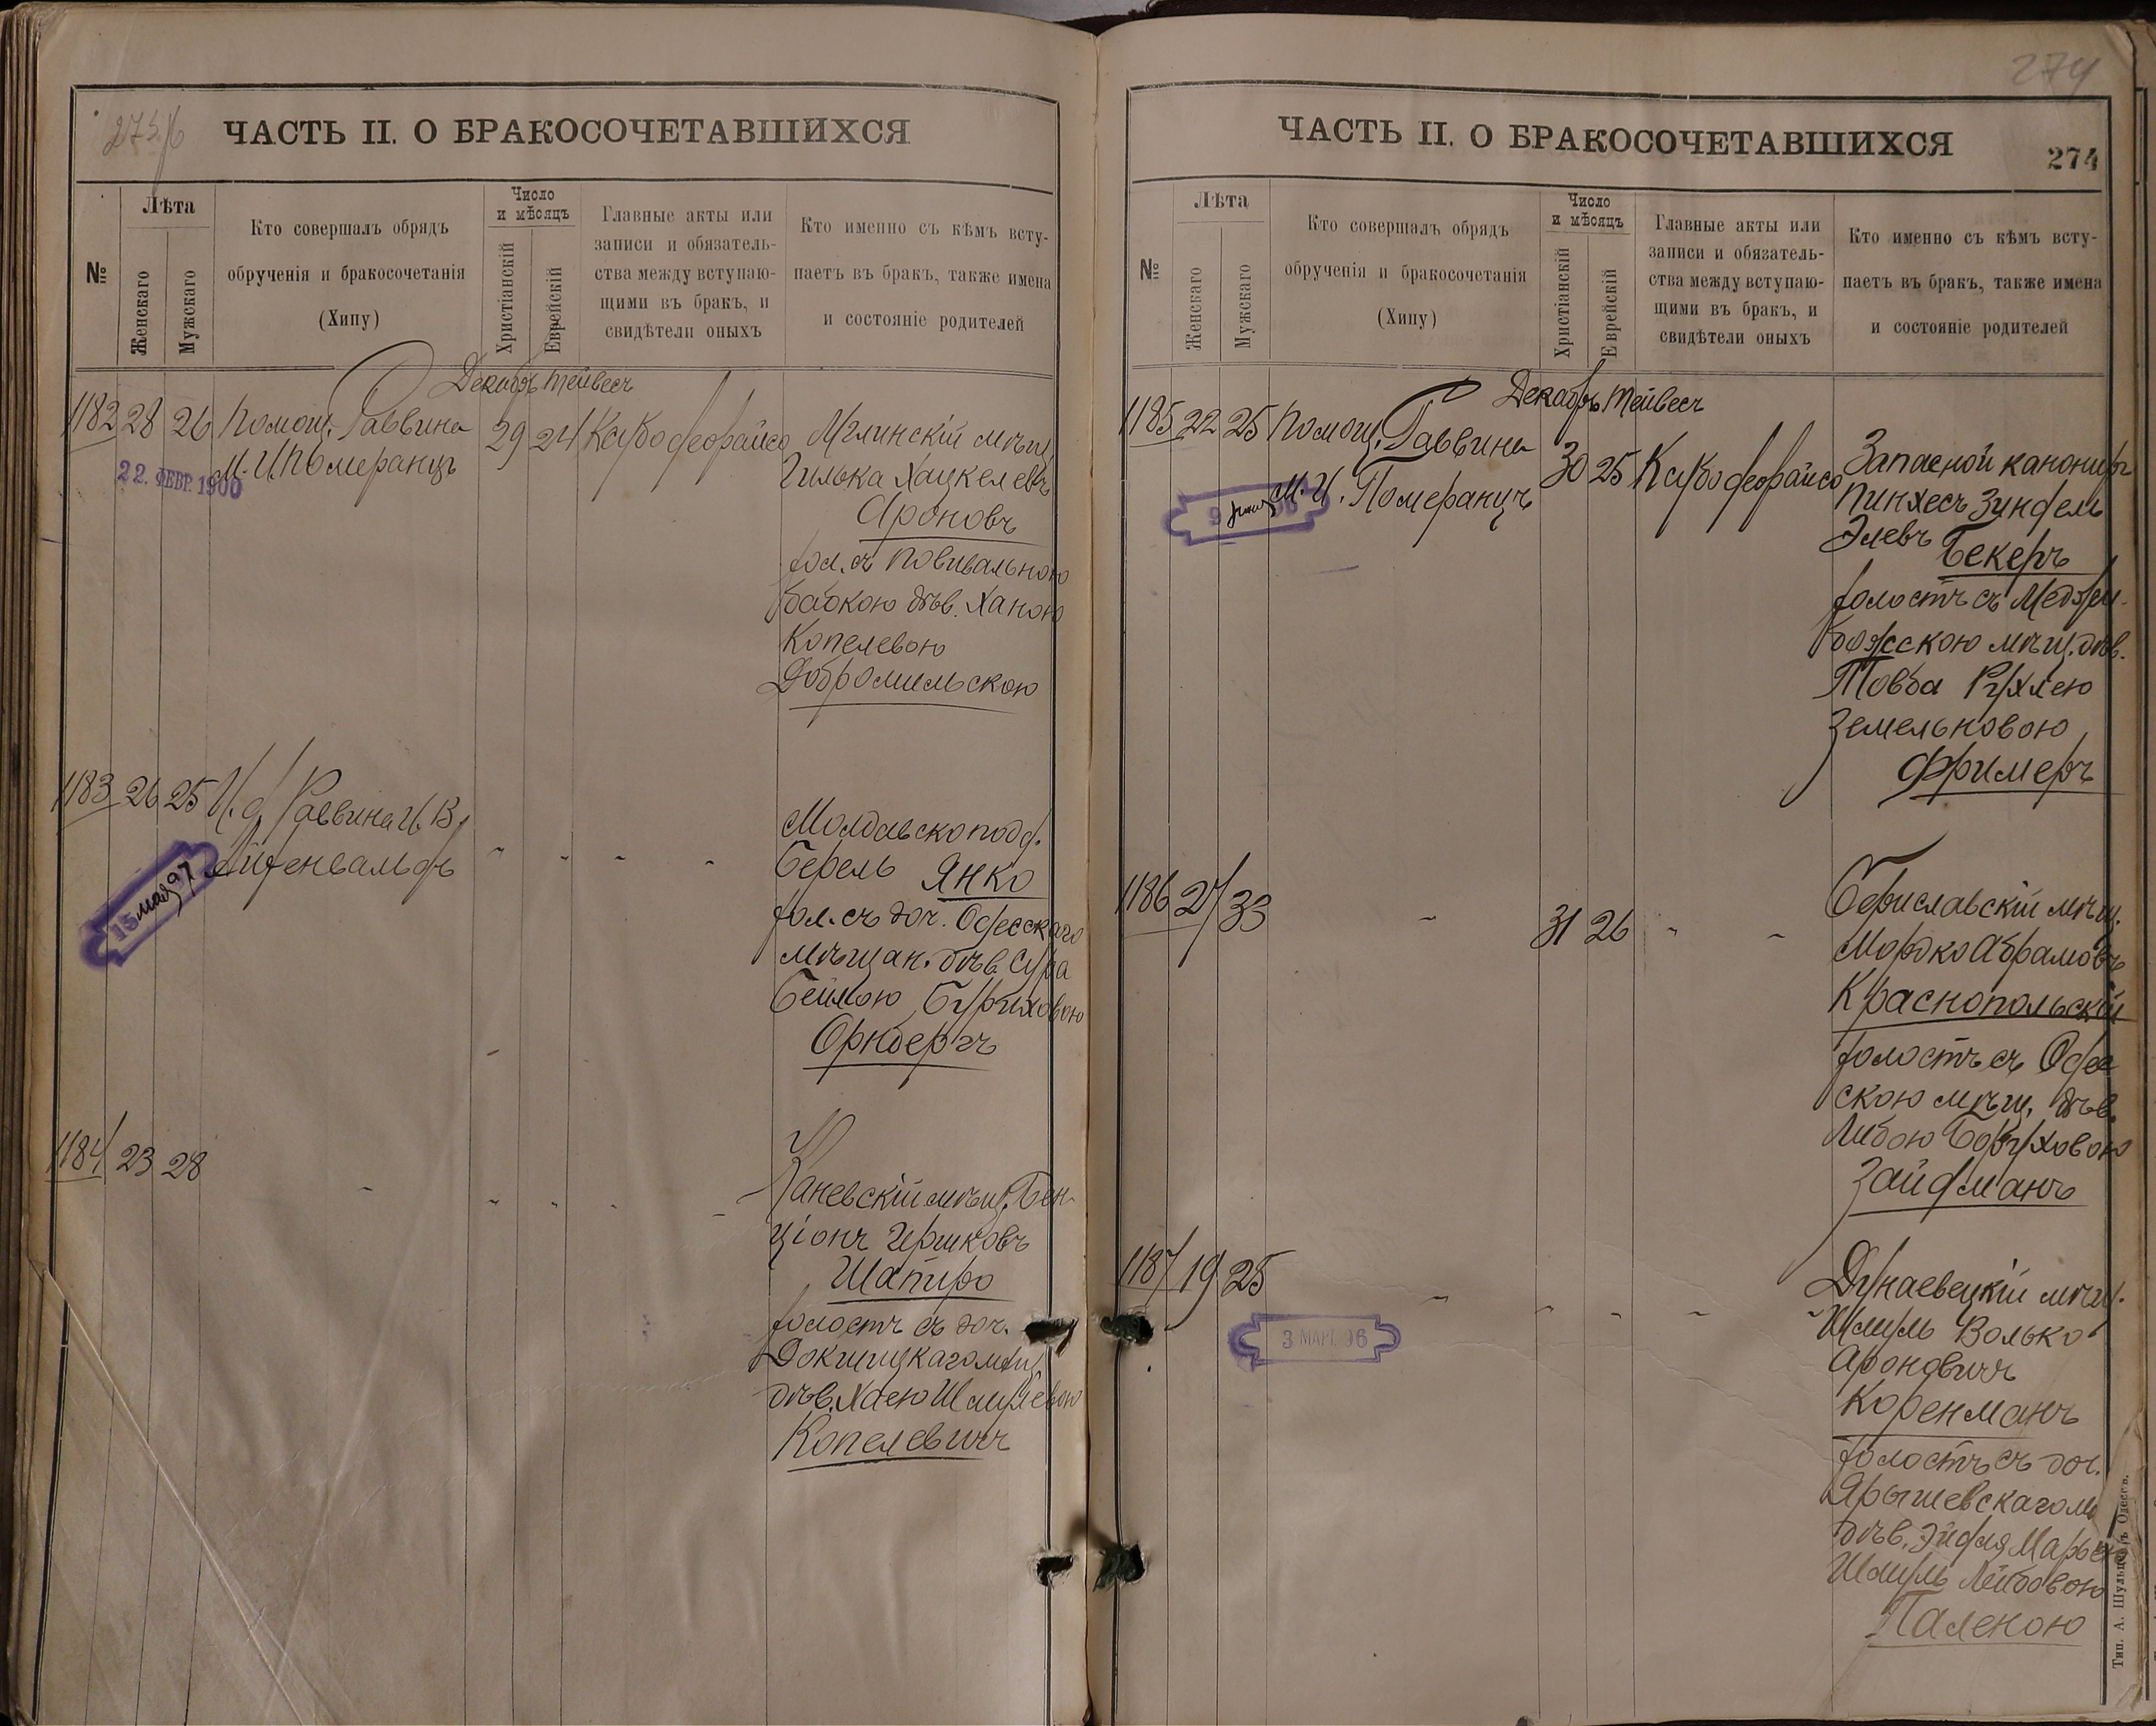 ЧАСТЬ II. О БРАКОСОЧЕТАВШИХСЯ
№
Лѣта
Женскаго
Мужскаго
Кто совершалъ обрядъ
обрученія и бракосочетанія
(Хипу)
Число
и мѣсяцъ
Христіанскій
Еврейскій
Главные акты или
записи и обязатель-
ства между вступаю-
щими въ бракъ, и
свидѣтели оныхъ
Кто именно съ кѣмъ всту-
паетъ въ бракъ, также имена
и состояніе родителей
Декабрь Тейвесъ
1182 28 26 Помощ. Раввина 29 24
М. И. Померанцъ
22. ФЕВР. 1900
Мглинскій мѣщ.
Гилька Хацкелевъ
Ароновъ
хол. съ повивальною
бабкою дѣв. Ханою
Копелевою
Добромильскою
1183 26 25 И. д. Раввина И. В.
Айзенвальдъ
15 мая 97
Молдавско подд.
Берель Янко
хол. съ доч. Одесскаго
мѣщан. дѣв. Сура
Бейлою Буриховою
Орнбергъ
1184 23 28
Каневскій мѣщ. Бен-
ціонъ Гершковъ
Шапиро
холостъ съ доч.
Докшицкаго мѣщ.
дѣв. Хаею Шмулевою
Копелевичъ
274
ЧАСТЬ II. О БРАКОСОЧЕТАВШИХСЯ
274
№
Лѣта
Женскаго
Мужскаго
Кто совершалъ обрядъ
обрученія и бракосочетанія
(Хипу)
Число
и мѣсяцъ
Христіанскій
Еврейскій
Главные акты или
записи и обязатель-
ства между вступаю-
щими въ бракъ, и
свидѣтели оныхъ
Кто именно съ кѣмъ всту-
паетъ въ бракъ, также имена
и состояніе родителей
Декабрь Тейвесъ
1185 22 25 Помощ. Раввина 30 25
М. И. Померанцъ
Запасной канониръ
Пинхесъ Зундель
Элевъ Бекеръ
холостъ съ Меджи-
божскою мѣщ. дѣв.
Товба Рухлею
Земельковою
Фримеръ
1186 27 33 31 26
Бериславскій мѣщ.
Мордко Абрамовъ
Краснопольскій
холостъ съ Одес
скою мѣщ. дѣв.
Либою Боруховою
Зайдманъ
1187 19 25
3 МАРТ. 96
Дунаевецкій мѣщ.
Шмуль Волько
Ароновичъ
Коренманъ
холостъ съ доч.
Ярышевскаго м
дѣв. Эйдля Марьею
Шмуль Лейбовою
Паленою
Тип. А. Шульце въ Одессѣ.